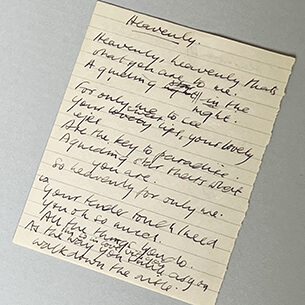 Heavenly.
Heavenly, heavenly thats
what you are to me.
A guiding star in the
night.
For only me to see
Your lovely lips, your lovely
eyes
Are the key to paradise.
A guiding star thats what
you are.
so heavenly for only me.
Your tender touch I need
You oh so much.
All the things you do.
As the way you
walk down the aisle.